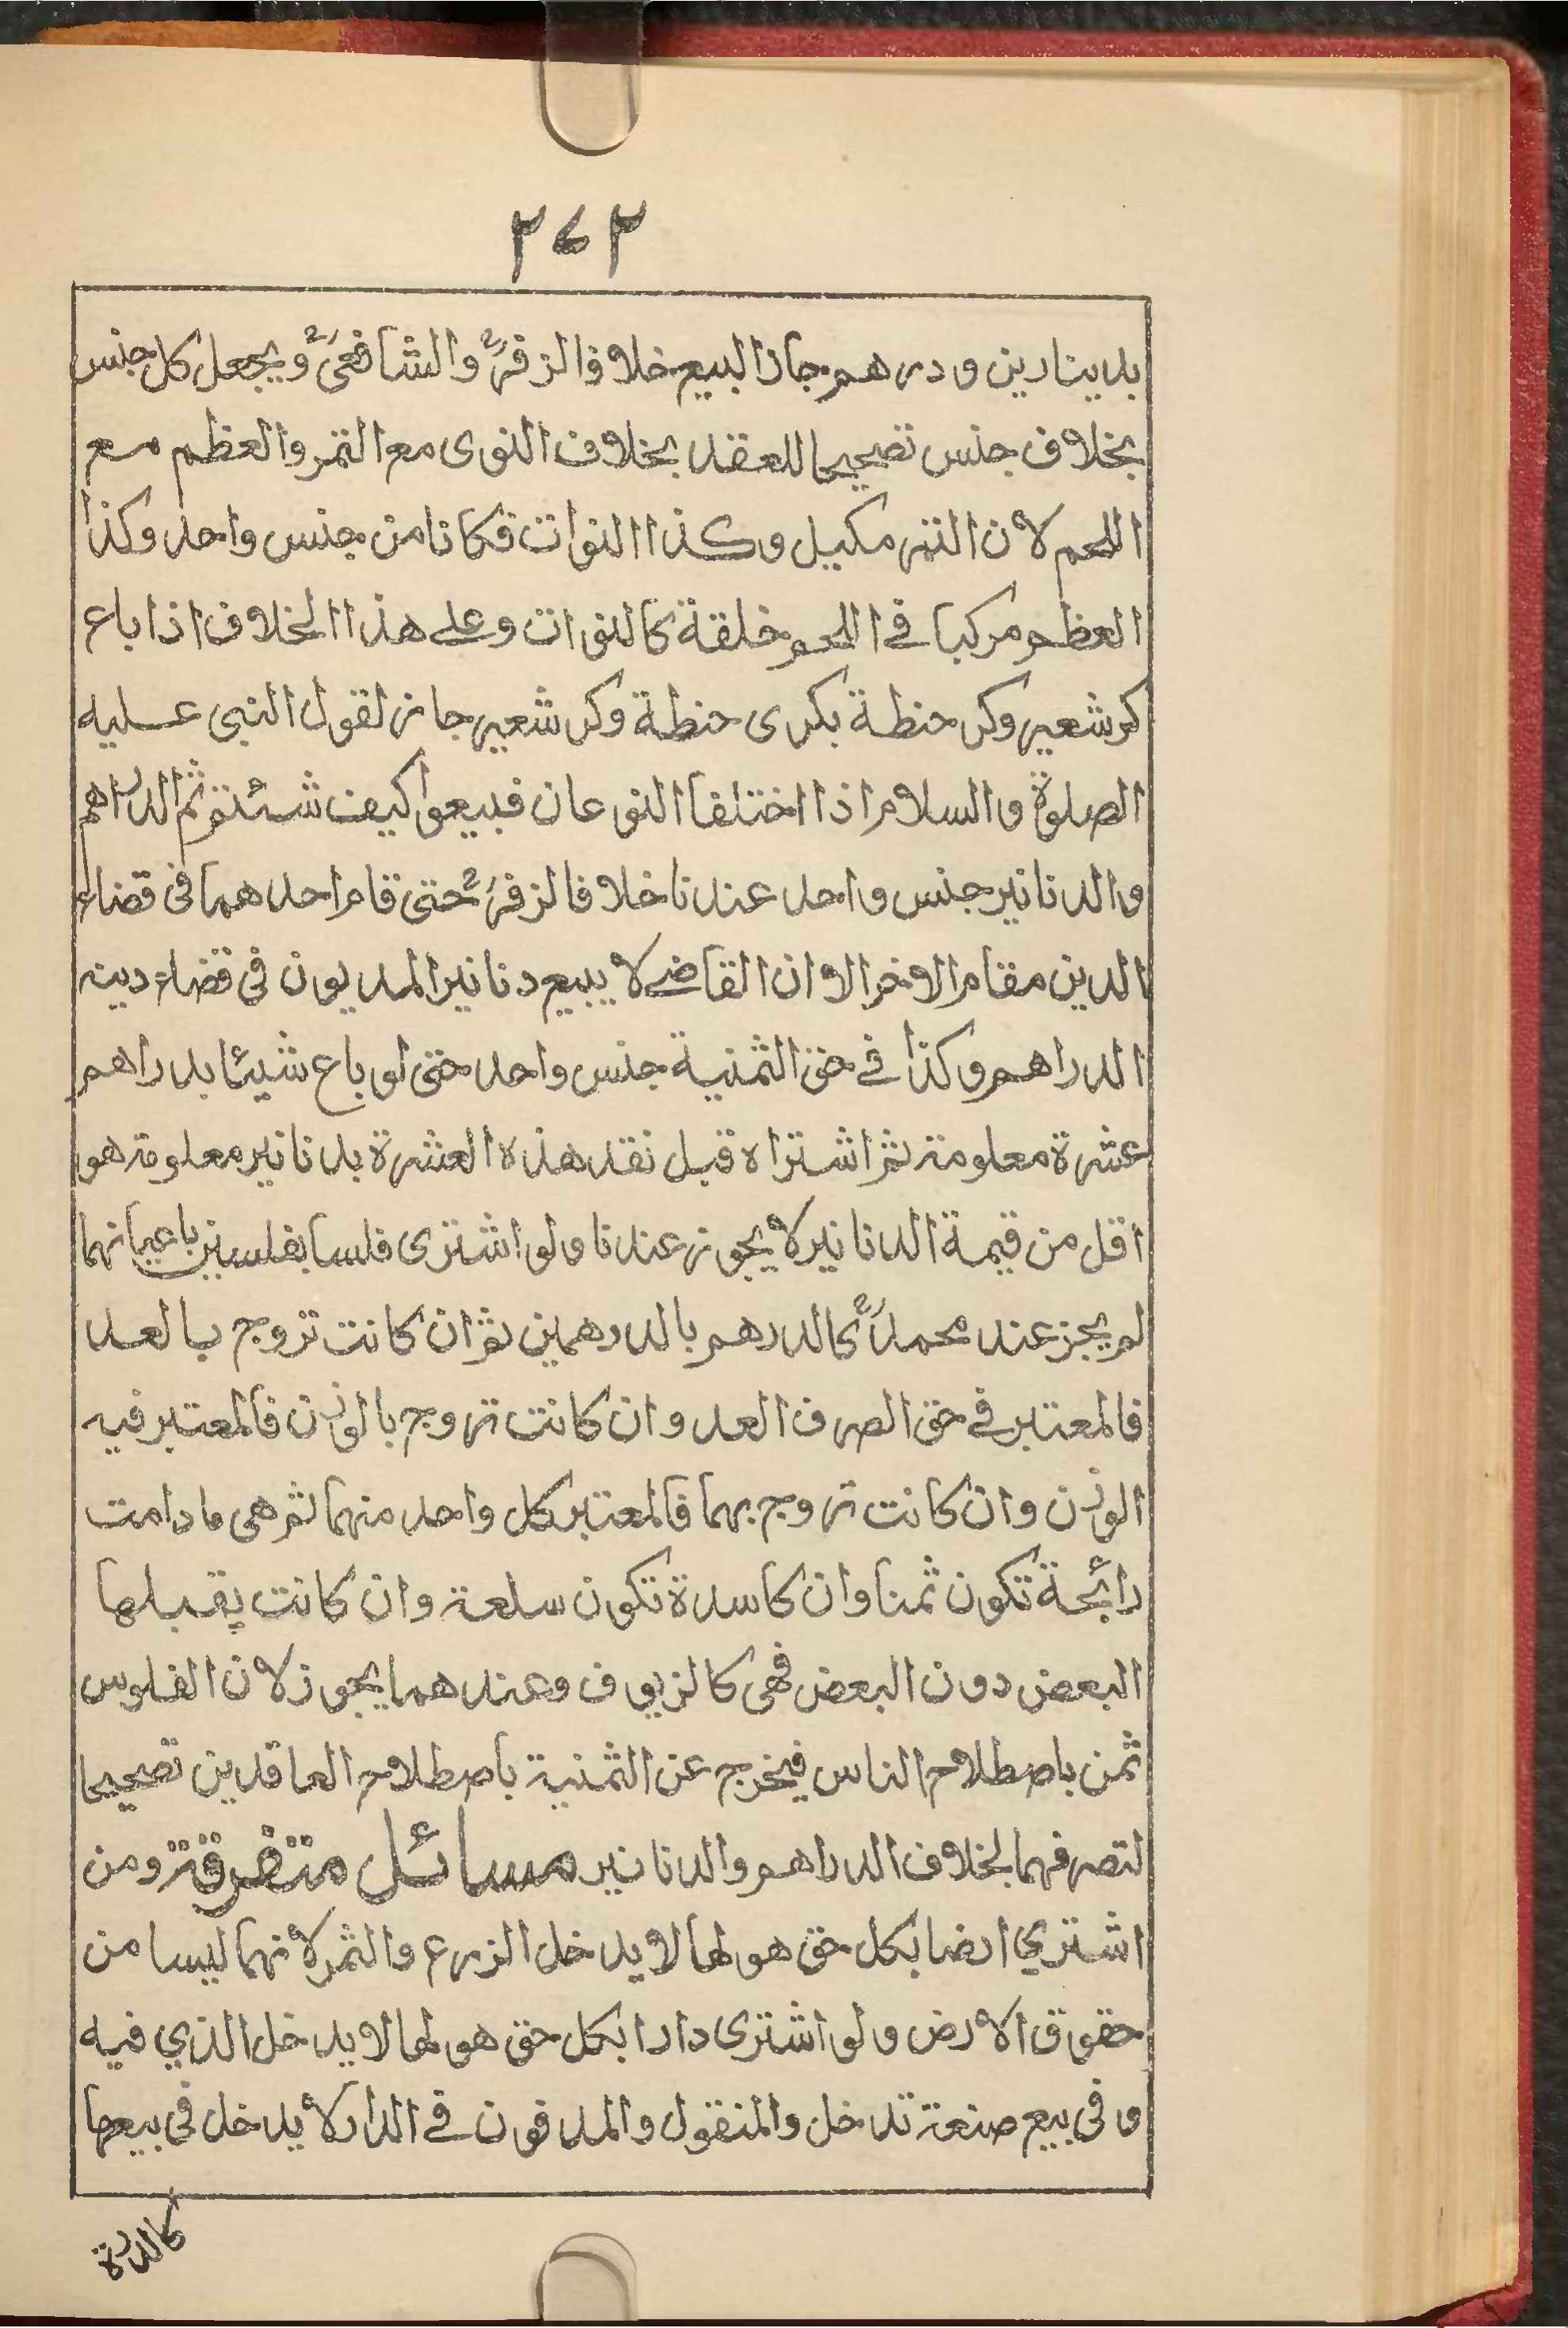 ٢٧٢
بدينارين ودرهم جاز البيع خلافا لزفرؒ والشافعيؒ ويجعل كل جنس
بخلاف جنس تصحيحا للعقد بخلاف النوى مع التمر والعظم مع
اللحم لان التمر مكيل وكذا النوات فكانا من جنس واحد وكذا
العظم مركبا في اللحم خلقة كالنوات وعلى هذا الخلاف اذا باع
كر شعير وكر حنطة بكرى حنطة وكر شعير جاز لقول النبى عليه
الصلوة والسلام اذا اختلفا النوعان فبيعوا كيف شئتم ثم الدراهم
والدنانير جنس واحد عندنا خلافا لزفرؒ حتى قام احدهما فى قضاء
الدين مقام الاخر الا ان القاضي لا يبيع دنانير المديون فى قضاء دينه
الدراهم وكذا في حق الثمنية جنس واحد حتى لو باع شيئا بدراهم
عشرة معلومة ثم اشتراه قبل نقد هذه العشرة بدنانير معلومة هو
اقل من قيمة الدنانير لا يجوز عندنا ولو اشترى فلسا بفلسين باعيانهما
لم يجز عند محمدؒ كالدرهم بالدرهمين ثم ان كانت تروج بالعد
فالمعتبر في حق الصرف العد وان كانت تروج بالوزن فالمعتبر فيه
الوزن وان كانت تروج بهما فالمعتبر كل واحد منهما ثم هى ما دامت
رائجة تكون ثمنا وان كاسدة تكون سلعة وان كانت يقبلها
البعض دون البعض فهى كالزيوف وعندهما يجوز لان الفلوس
ثمن باصطلاح الناس فيخرج عن الثمنية باصطلاح العاقدين تصحيحا
لتصرفهما بخلاف الدراهم والدنانير مسائل متفرقة ومن
اشتري ارضا بكل حق هو لها لا يدخل الزرع والثمر لانهما ليسا من
حقوق الارض ولو اشترى دارا بكل حق هو لها لا يدخل الذي فيه
وفى بيع صنعة تدخل والمنقول والمدفون في الدار لا يدخل فى بيعها
كالدرة